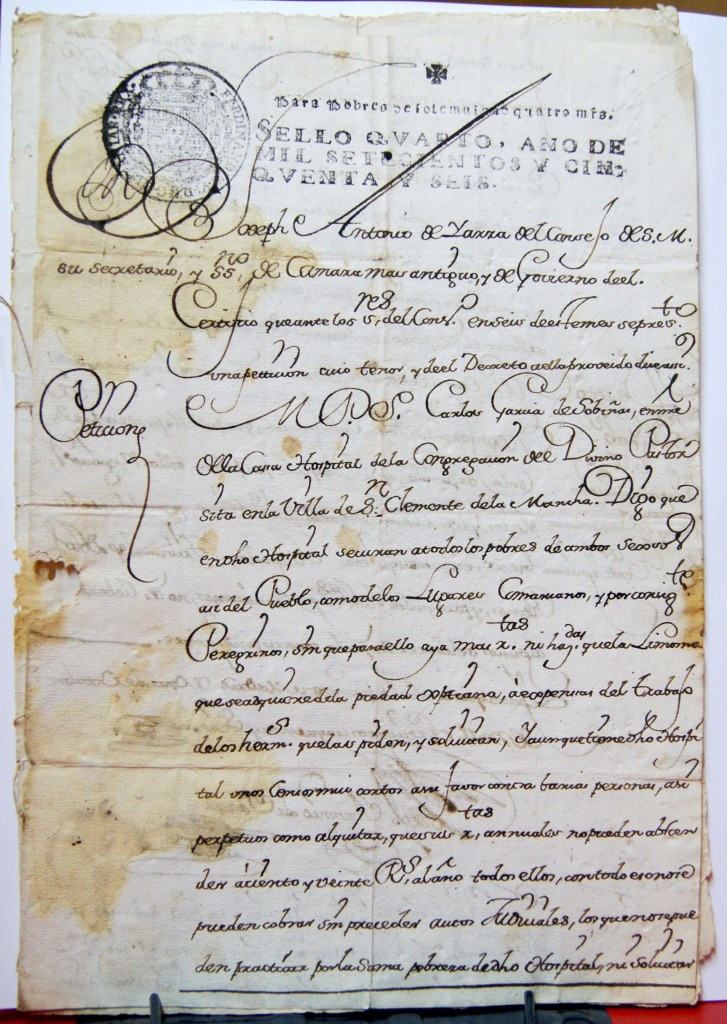 Para Pobres de solemnidad quatro mrs.
SELLO QVARTO, AÑO DE
MIL SETECIENTOS Y CIN-
QVENTA Y SEIS.
Joseph Antonio de Yarza del Consejo de S. M.
su Secretario, y ss.no de Camara mas antiguo, y de Govierno de el.
Certifico que ante los s.res del Cons.o en seis de este mes se pres.to
una peticion cuio tenor, y de el Decreto a ella proveido dice asi.
Peticion
M. P. S. Carlos Garcia de Sobiñas, en nre
de la Casa Hospital de la Congregacion del Divino Pastor
sita en la Villa de S.n Clemente de la Mancha. Digo que
en dho Hospital se curan a todos los pobres de ambos sexos
asi del Pueblo, como de los Lugares Comarcanos, y por consig.te
Peregrinos, sin que para ello aya mas r.tas ni haz.das que la Limosna
que se adquiere de la piedad xptiana, à expensas del trabajo
de los herm.s que las piden, y solicitan, Y aunque tiene dho Hospi
tal unos Censos mui cortos a su favor contra barias personas, asi
perpetuos como al quitar, que sus r.tas annuales no pueden ascen
der à ciento y veinte R.s al año todos ellos, con todo eso no se
pueden cobrar sin preceder autos Judiciales, los que no se pue
den practicar por la suma pobreza de dho Hospital, ni solicitar